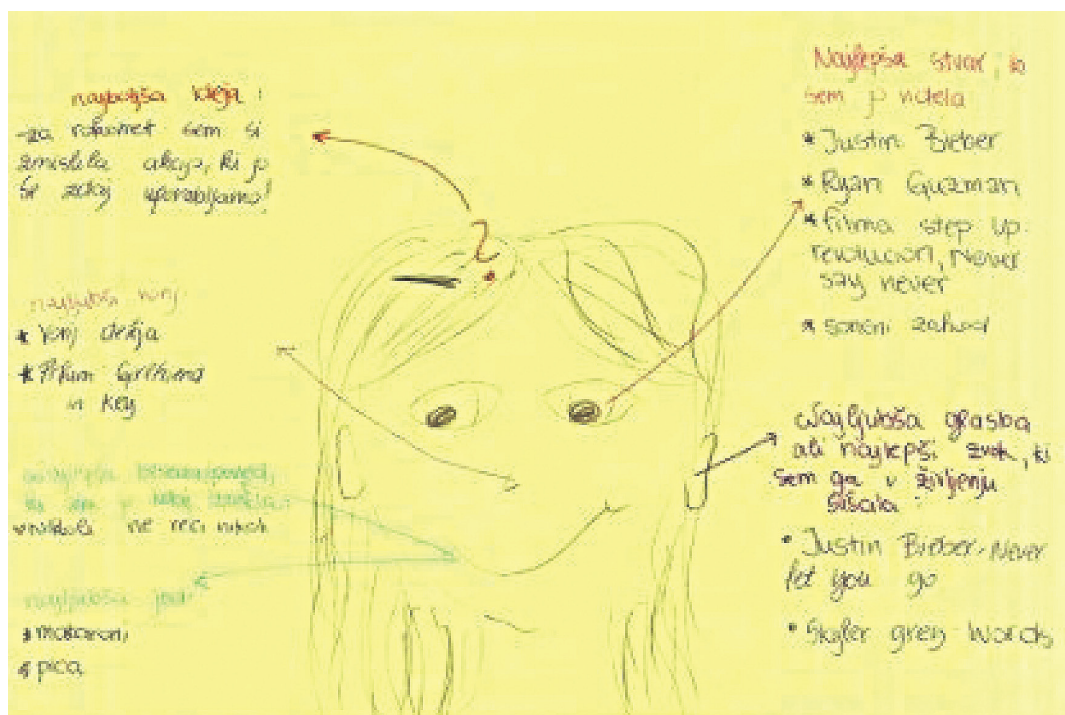 najboljša ideja:
-za rokomet sem si
zmislila akcijo, ki jo
še zdaj uporabljamo!
najljubši vonj
* Vonj dežja
* Pifum
in Key
najlepša
ki sem jo
nikoli ne reci nikoli
najljubša jed:
* makaroni
* pica
Najlepša stvar, ki
sem jo videla
* Justin Bieber
* Ryan Guzman
* filma step up
revolucion, Never
say never
* sončni zahod
Najljubša glasba
ali najlepši zvok, ki
sem ga v življenju
slišala:
• Justin Bieber-Never
let you go
• Skyler grey Words